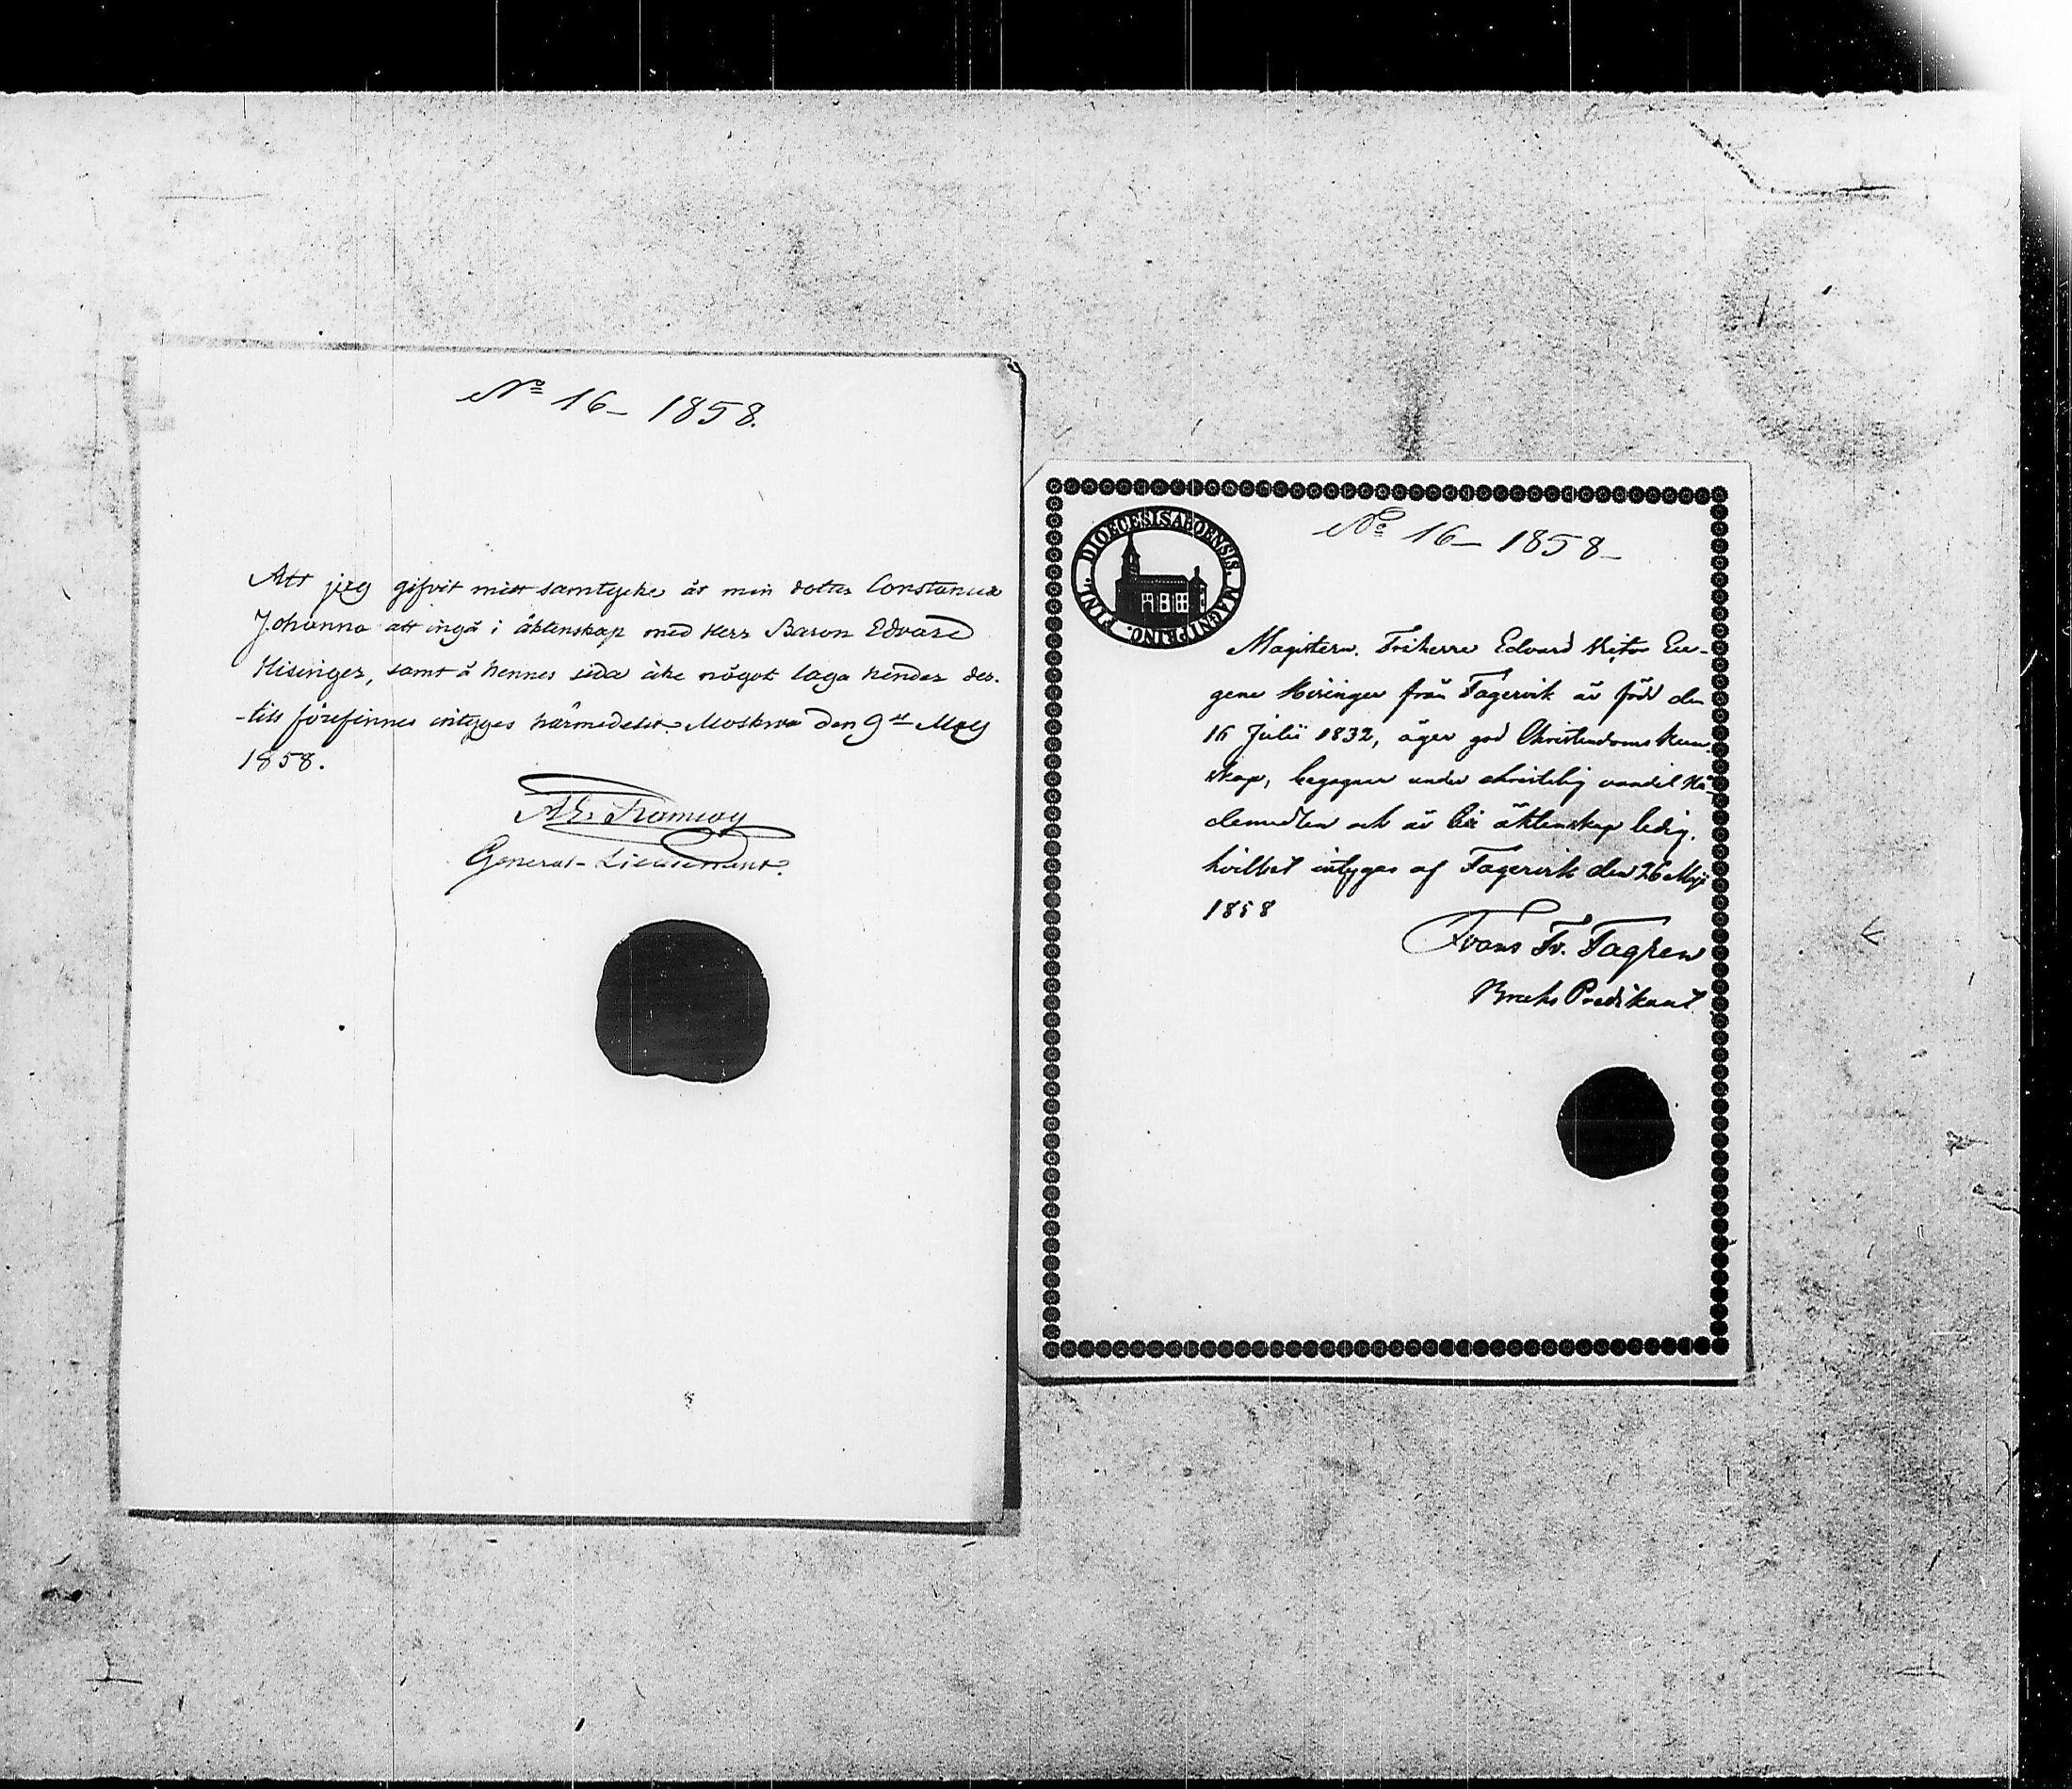 No 16 – 1858.
Att jag gifvit mitt samtycke åt min dotter Constance
Johanna att ingå i äktenskap med Herr Baron Edvard
Hisinger, samt å hennes sida icke något laga hinder der-
-till förefinnes intyges härmedelst. Moskwa den 9de Maj
1858.
Ramsay
General-Lieutenant.
FINL. DIOECESIS ABOENSIS. MAGNI PRINC.
No 16 – 1858 –
Magistern. Friherre Edvard Victor Eu-
gene Hisinger från Fagervik är född den
16 Julii 1832, äger god Christendoms kun-
skap, begagnar under christelig vandel Nå-
demedlen och är till äktenskap ledig.
hvilket intygas af Fagervik den 26 Maji
1858
Frans Fr. Fagren
Bruks Predikant